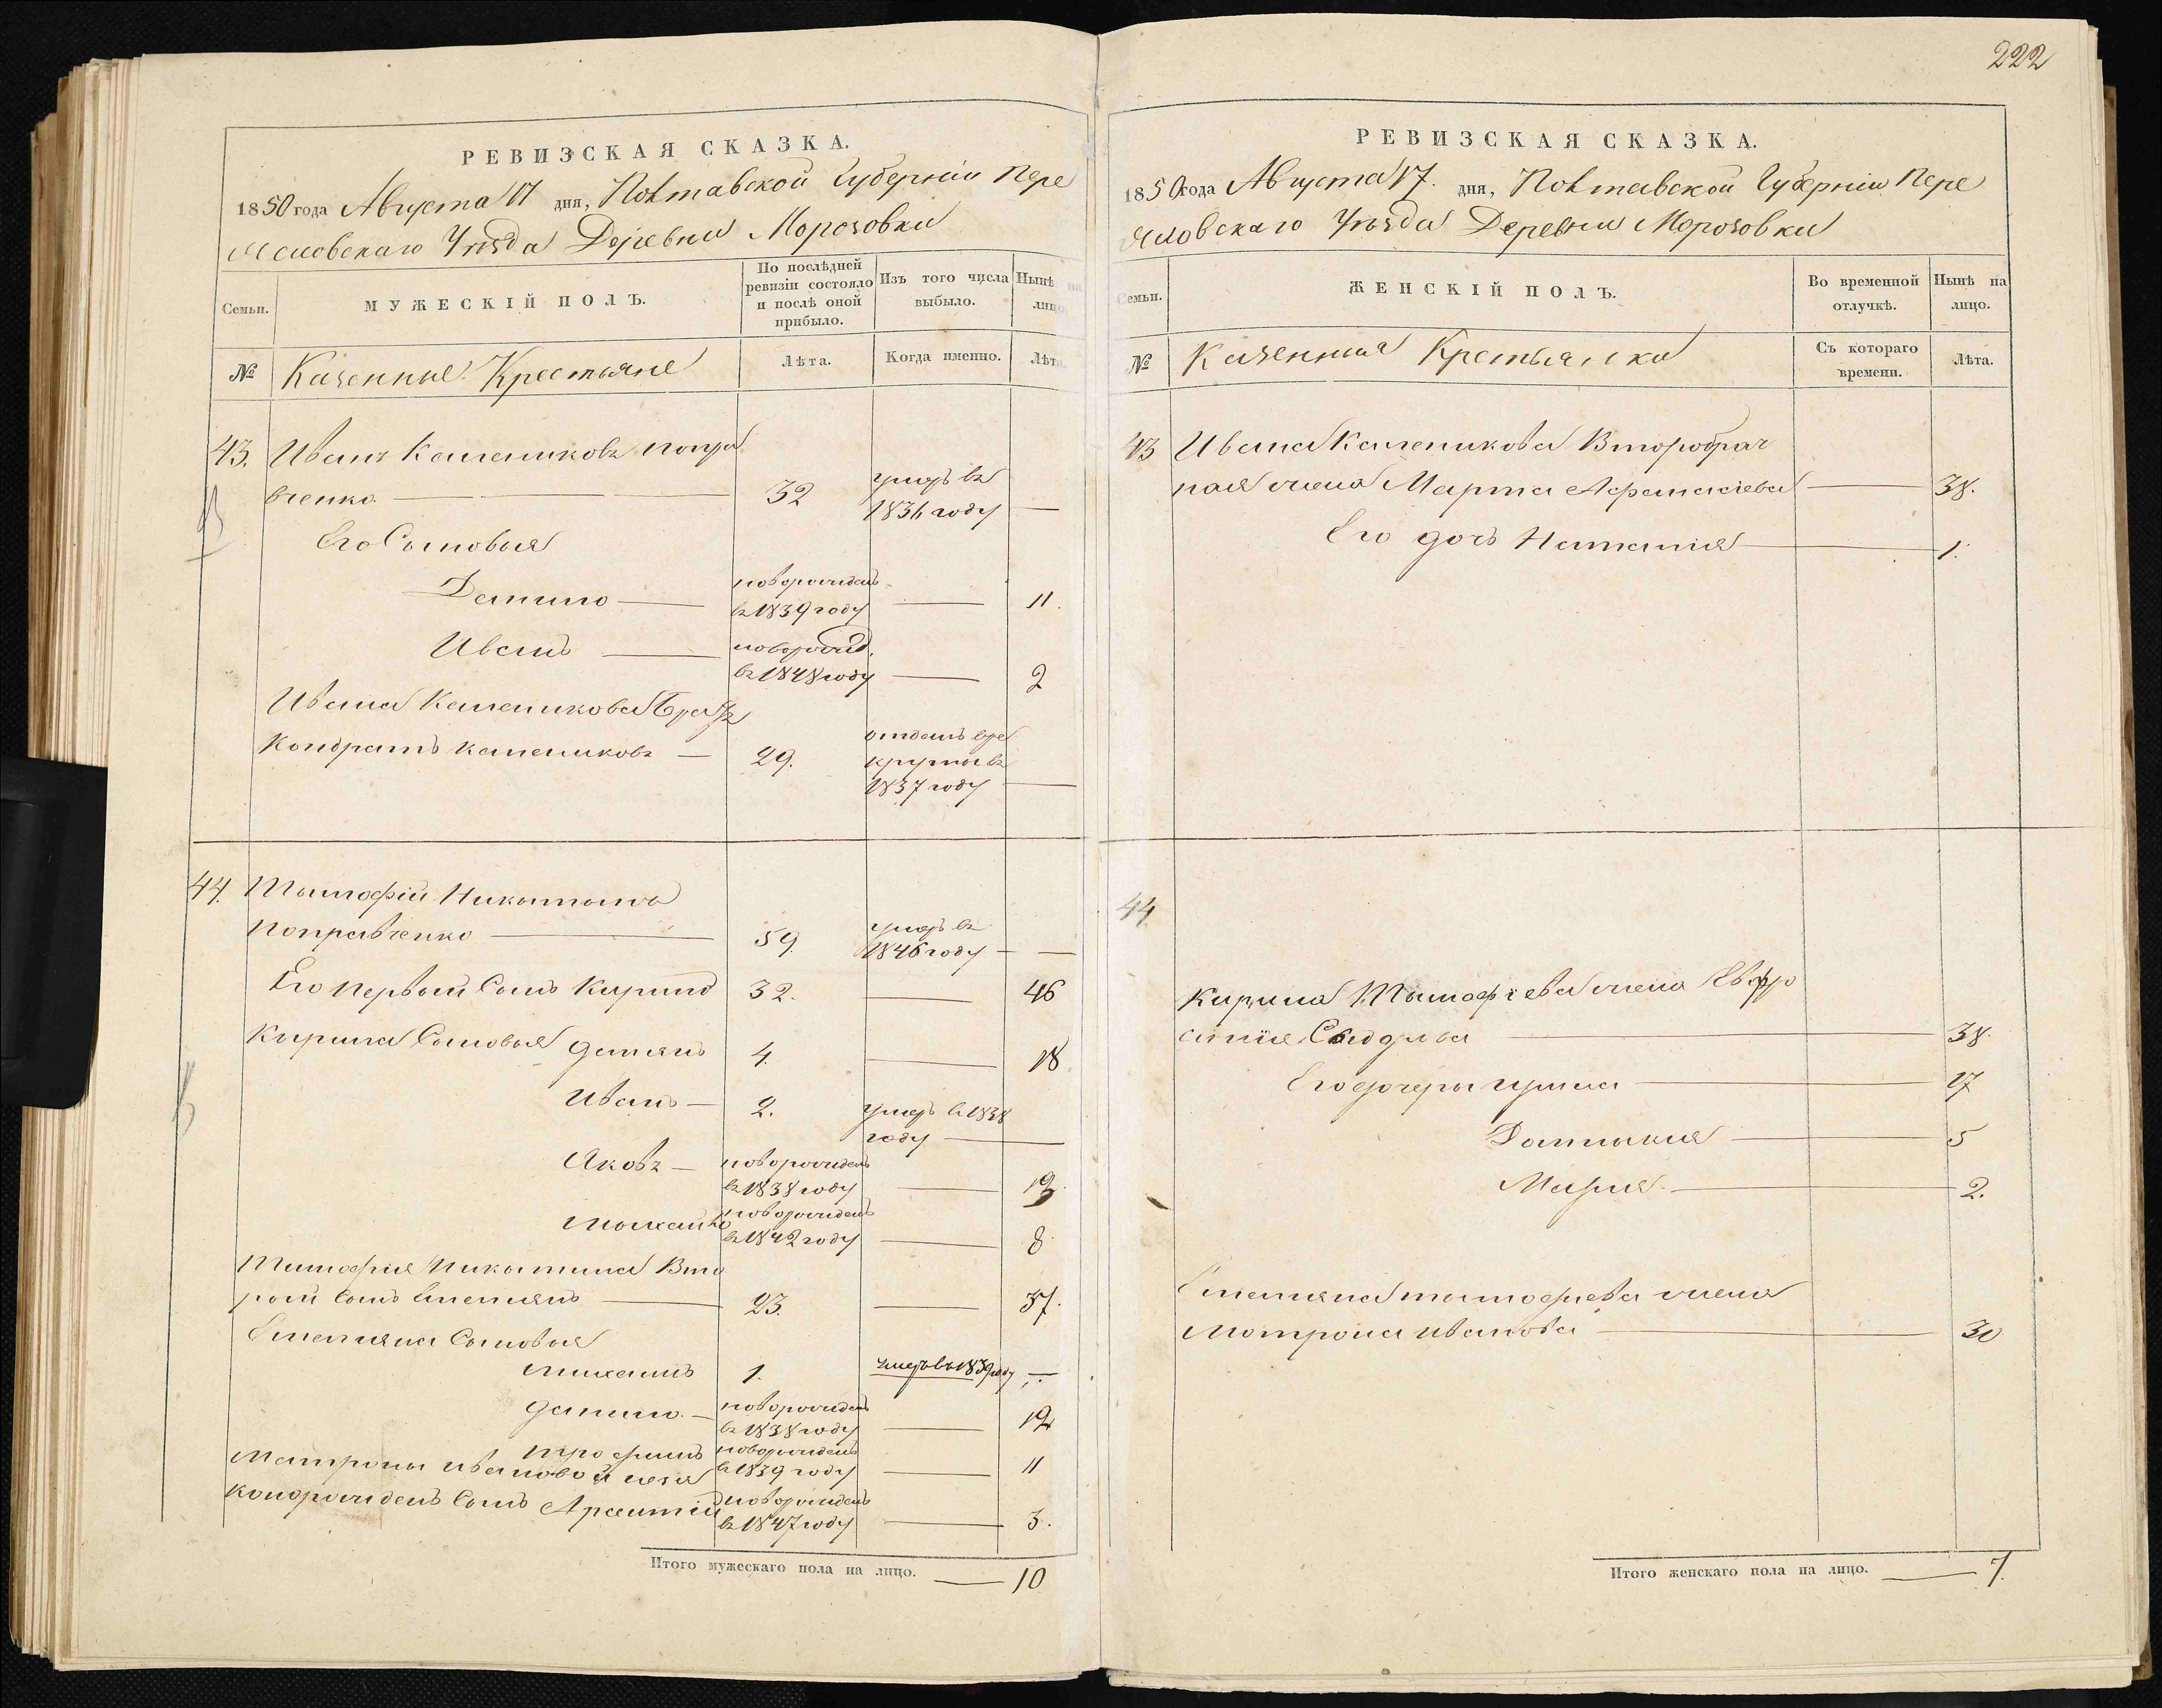 222
РЕВИЗСКАЯ СКАЗКА.
1850 года Августа 17 дня, Полтавской Губерніи Пере
яславскаго Уѣзда Деревни Морозовки
Семьи.
МУЖЕСКІЙ ПОЛЪ.
По послѣдней ревизіи состояло и послѣ оной прибыло.
Изъ того числа выбыло.
Нынѣ на лицо
№
Казенные Крестьяне
Лѣта.
Когда именно.
Лѣта
43. Иванъ Калениковъ Попра
вченко 32 умеръ въ
1836 году —
Его Сыновья
Данило новорожденъ
в 1839 году — 11.
Иванъ новорожд.
въ 1848 году — 2
Ивана Каленикова Братъ
Кондратъ Калениковъ — 29. отданъ в ре
круты въ
1837 году —
44. Тымофій Никитинъ
Поправченко 59. умеръ въ
1846 году —
Его первый Сынъ Кирило 32. — 46
Кирила Сыновья Демянъ 4. — 18.
Иванъ — 2. умеръ в 1838
году —
Яковъ — новорожденъ
въ 1838 году — 12
Михайло новорожденъ
въ 1842 году — 8
Тимофія Никитина Вто
рой Сынъ Емелянъ 23. — 37.
Емеляна Сыновья
Михаилъ 1. умеръ въ 1839 году —
Данило. — новорожденъ
въ 1838 году — 12
Трофимъ новорожденъ
в 1839 году — 11
Матроны Ивановой неза
конорожденъ Сынъ Арсентій новорожденъ
въ 1847 году — 3.
Итого мужескаго пола на лицо. — 10
РЕВИЗСКАЯ СКАЗКА.
1850 года Августа 17. дня, Полтавской Губерніи Пере
яславскаго Уѣзда Деревни Морозовки
Семьи.
ЖЕНСКІЙ ПОЛЪ.
Во временной отлучкѣ.
Нынѣ на лицо.
№
Казенныя Крестьянки
Съ котораго времени.
Лѣта.
43 Ивана Каленикова Второбрач
ная жена Марта Афанасіева — 38.
Его дочь Наталія — 1.
44
Кирила Тымофіева жена Евфро
синія — 38.
Его дочеры Ирина — 17
Домникия — 5
Мария — 2.
Емеляна Тымофиева жена
Мотрона Иванова — 30
Итого женскаго пола на лицо. — 7.